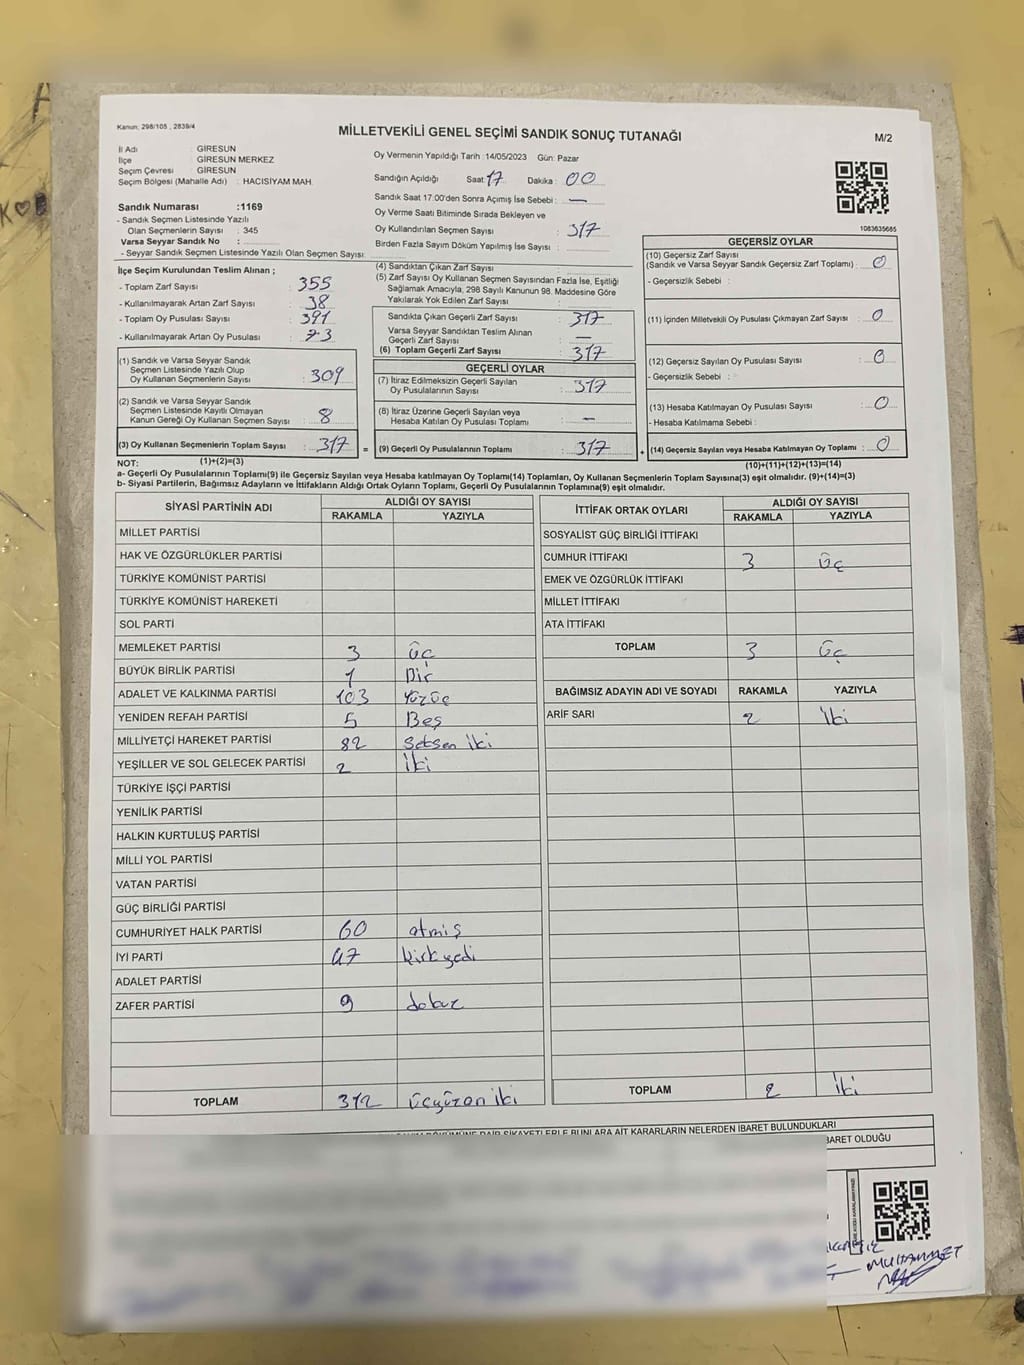 Kanun: 298/105 , 2839/4
MİLLETVEKİLİ GENEL SEÇİMİ SANDIK SONUÇ TUTANAĞI
M/2
İl Adı : GİRESUN
İlçe : GİRESUN MERKEZ
Seçim Çevresi : GİRESUN
Seçim Bölgesi (Mahalle Adı) : HACISİYAM MAH.
Sandık Numarası :1169
- Sandık Seçmen Listesinde Yazılı
Olan Seçmenlerin Sayısı : 345
Varsa Seyyar Sandık No :
- Seyyar Sandık Seçmen Listesinde Yazılı Olan Seçmen Sayısı :
Oy Vermenin Yapıldığı Tarih :14/05/2023 Gün: Pazar
Sandığın Açıldığı Saat: 17 Dakika : 00
Sandık Saat 17.00'den Sonra Açımış İse Sebebi : —
Oy Verme Saati Bitiminde Sırada Bekleyen ve
Oy Kullandırılan Seçmen Sayısı : 317
Birden Fazla Sayım Döküm Yapılmış İse Sayısı :
1083635685
İlçe Seçim Kurulundan Teslim Alınan ;
- Toplam Zarf Sayısı : 355
- Kullanılmayarak Artan Zarf Sayısı : 38
- Toplam Oy Pusulası Sayısı : 391
- Kullanılmayarak Artan Oy Pusulası : 73
(1) Sandık ve Varsa Seyyar Sandık
Seçmen Listesinde Yazılı Olup
Oy Kullanan Seçmenlerin Sayısı : 309
(2) Sandık ve Varsa Seyyar Sandık
Seçmen Listesinde Kayıtlı Olmayan
Kanun Gereği Oy Kullanan Seçmen Sayısı : 8
(3) Oy Kullanan Seçmenlerin Toplam Sayısı : 317
(1)+(2)=(3)
(4) Sandıktan Çıkan Zarf Sayısı :
(5) Zarf Sayısı Oy Kullanan Seçmen Sayısından Fazla İse, Eşitliği
Sağlamak Amacıyla, 298 Sayılı Kanunun 98. Maddesine Göre
Yakılarak Yok Edilen Zarf Sayısı :
Sandıkta Çıkan Geçerli Zarf Sayısı : 317
Varsa Seyyar Sandıktan Teslim Alınan
Geçerli Zarf Sayısı : —
(6) Toplam Geçerli Zarf Sayısı : 317
GEÇERLİ OYLAR
(7) İtiraz Edilmeksizin Geçerli Sayılan
Oy Pusulalarının Sayısı : 317
(8) İtiraz Üzerine Geçerli Sayılan veya
Hesaba Katılan Oy Pusulaları Toplamı : —
= (9) Geçerli Oy Pusulalarının Toplamı : 317
GEÇERSİZ OYLAR
(10) Geçersiz Zarf Sayısı
(Sandık ve Varsa Seyyar Sandık Geçersiz Zarf Toplamı) : 0
- Geçersizlik Sebebi :
(11) İçinden Milletvekili Oy Pusulası Çıkmayan Zarf Sayısı : 0
(12) Geçersiz Sayılan Oy Pusulası Sayısı : 0
- Geçersizlik Sebebi :
(13) Hesaba Katılmayan Oy Pusulası Sayısı : 0
- Hesaba Katılmama Sebebi :
+ (14) Geçersiz Sayılan veya Hesaba Katılmayan Oy Toplamı : 0
(10)+(11)+(12)+(13)=(14)
NOT:
a- Geçerli Oy Pusulalarının Toplamı(9) ile Geçersiz Sayılan veya Hesaba katılmayan Oy Toplamı(14) Toplamları, Oy Kullanan Seçmenlerin Toplam Sayısına(3) eşit olmalıdır. (9)+(14)=(3)
b- Siyasi Partilerin, Bağımsız Adayların ve İttifakların Aldığı Ortak Oyların Toplamı, Geçerli Oy Pusulalarının Toplamına(9) eşit olmalıdır.
SİYASİ PARTİNİN ADI ALDIĞI OY SAYISI
RAKAMLA YAZIYLA
MİLLET PARTİSİ
HAK VE ÖZGÜRLÜKLER PARTİSİ
TÜRKİYE KOMÜNİST PARTİSİ
TÜRKİYE KOMÜNİST HAREKETİ
SOL PARTİ
MEMLEKET PARTİSİ 3 üç
BÜYÜK BİRLİK PARTİSİ 1 Bir
ADALET VE KALKINMA PARTİSİ 103 Yüzüç
YENİDEN REFAH PARTİSİ 5 Beş
MİLLİYETÇİ HAREKET PARTİSİ 82 Seksen iki
YEŞİLLER VE SOL GELECEK PARTİSİ 2 iki
TÜRKİYE İŞÇİ PARTİSİ
YENİLİK PARTİSİ
HALKIN KURTULUŞ PARTİSİ
MİLLİ YOL PARTİSİ
VATAN PARTİSİ
GÜÇ BİRLİĞİ PARTİSİ
CUMHURİYET HALK PARTİSİ 60 atmış
İYİ PARTİ 47 kırkyedi
ADALET PARTİSİ
ZAFER PARTİSİ 9 dokuz
TOPLAM 312 üçyüzon iki
İTTİFAK ORTAK OYLARI ALDIĞI OY SAYISI
RAKAMLA YAZIYLA
SOSYALİST GÜÇ BİRLİĞİ İTTİFAKI
CUMHUR İTTİFAKI 3 üç
EMEK VE ÖZGÜRLÜK İTTİFAKI
MİLLET İTTİFAKI
ATA İTTİFAKI
TOPLAM 3 üç
BAĞIMSIZ ADAYIN ADI VE SOYADI RAKAMLA YAZIYLA
ARİF SARI 2 iki
TOPLAM 2 iki
DAİR ŞİKAYETLERLE BUNLARA AİT KARARLARIN NELERDEN İBARET BULUNDUKLARI
BARET OLDUĞU
MUHAMMET